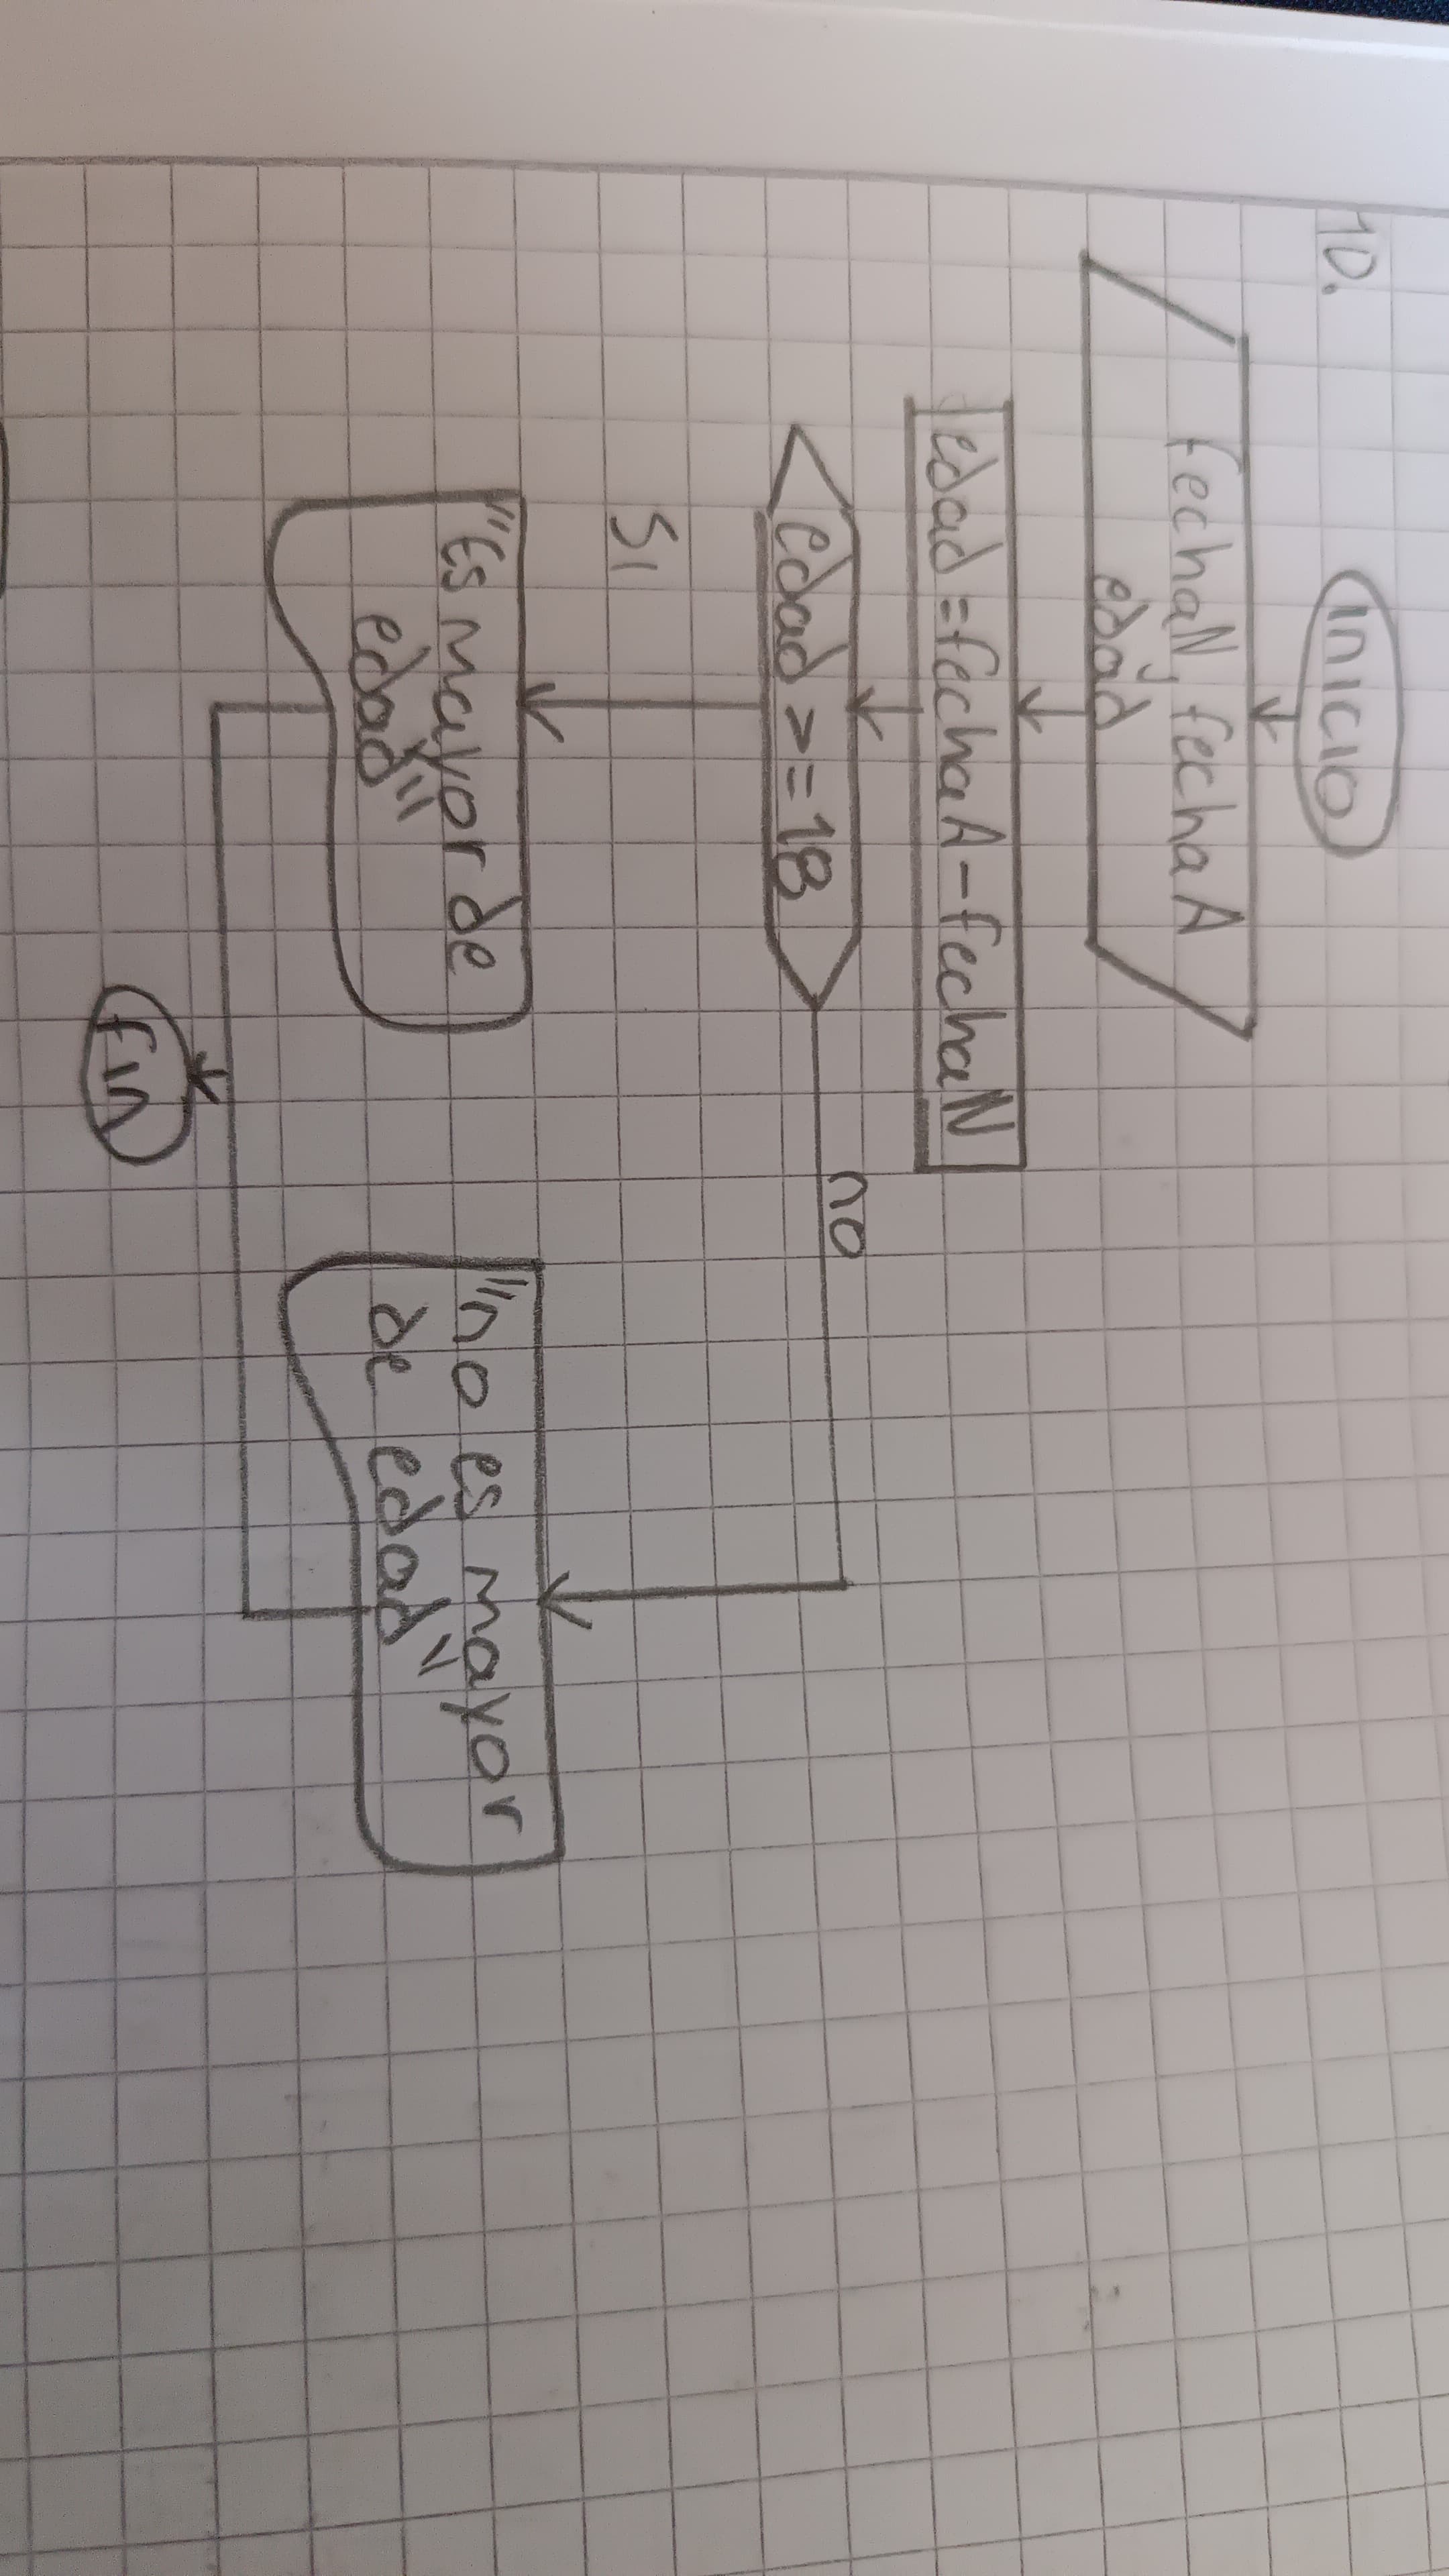 10.
inicio
fechaN, fechaA,
edad
edad = fechaA - fechaN
edad >= 18
no
Si
"Es mayor de
edad"
"no es mayor
de edad"
fin